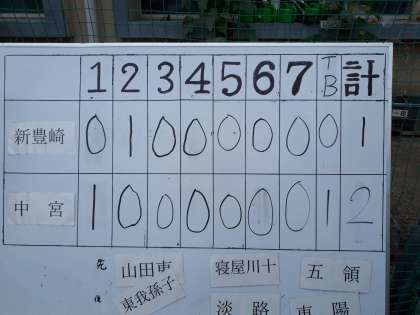 1 2 3 4 5 6 7 TB 計
新豊崎 0 1 0 0 0 0 0 0 1
中宮 1 0 0 0 0 0 0 1 2
先 山田東 寝屋川十 五領
東我孫子 淡路 東陽